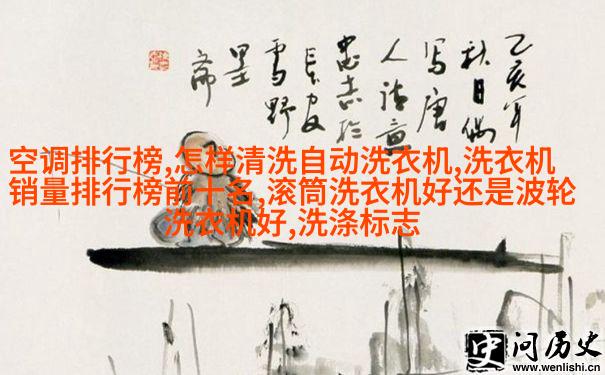 乙亥年
秋日偶
写唐
人诗意
忠志於
长安
雪野
墨
斋
空调排行榜,怎样清洗自动洗衣机,洗衣机
销量排行榜前十名,滚筒洗衣机好还是波轮
洗衣机好,洗涤标志
史问历史
www.wenlishi.cn